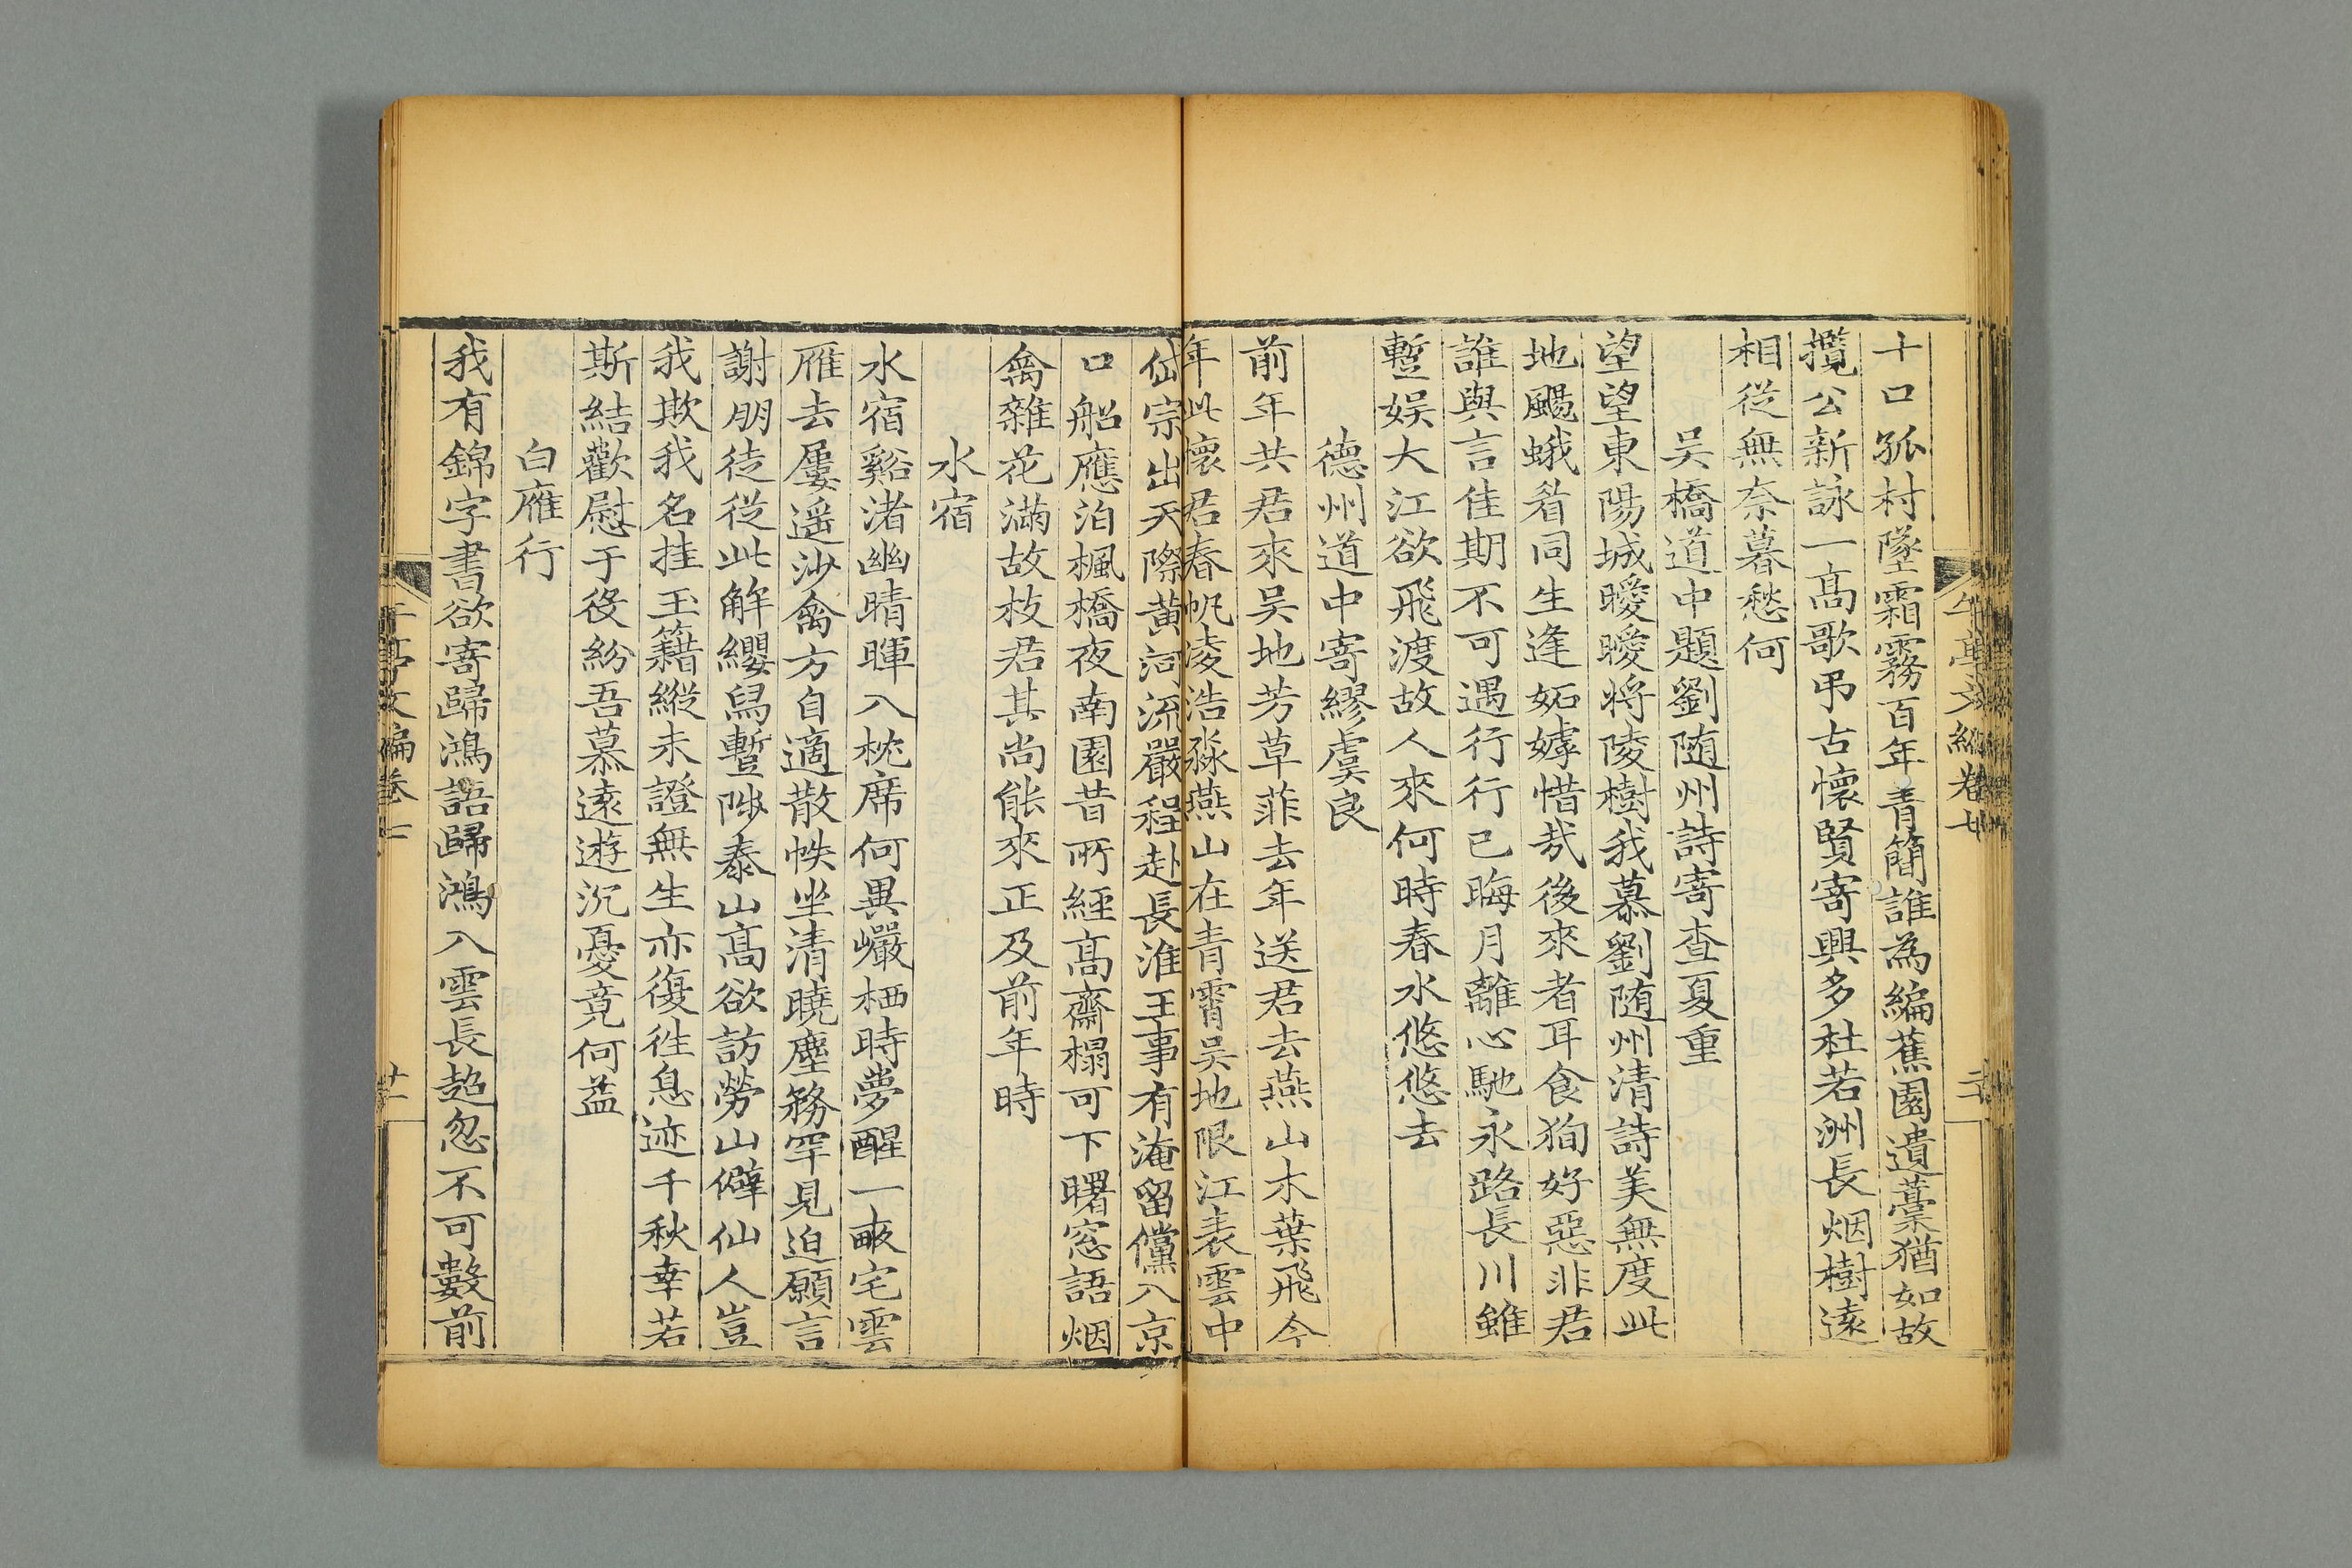 十口孤村墜霜霧百年青簡誰為編蕉園遺藁猶如故
攬公新詠一高歌弔古懷賢寄興多杜若洲長烟樹遠
相從無奈暮愁何
吳橋道中題劉随州詩寄查夏重
望望東陽城曖曖将陵樹我慕劉随州清詩美無度此
地颺蛾眉同生逢妬嫭惜哉後來者耳食狥好惡非君
誰與言佳期不可遇行行已晦月離心馳永路長川雖
蹔娱大江欲飛渡故人來何時春水悠悠去
德州道中寄繆虞良
前年共君來吴地芳草菲去年送君去燕山木葉飛今
年此懷君春帆凌浩淼燕山在青霄吴地限江表雲中
岱宗出天際黄河流嚴程赴長淮王事有淹留儻入京
口船應泊楓橋夜南園昔所經高齋榻可下曙窓語烟
禽雜花滿故枝君其尚能來正及前年時
水宿
水宿谿渚幽晴暉入枕席何異巗栖時夢醒一畝宅雲
雁去屢遥沙禽方自適散帙坐清曉塵務罕見迫願言
謝朋徒從此解纓舄蹔陟泰山高欲訪勞山僻仙人豈
我欺我名挂玉籍縱未證無生亦復徃息迹千秋幸若
斯結歡慰于役紛吾慕遠遊沉憂竟何益
白雁行
我有錦字書欲寄歸鴻語歸鴻入雲長超忽不可數前
午亭文編卷十